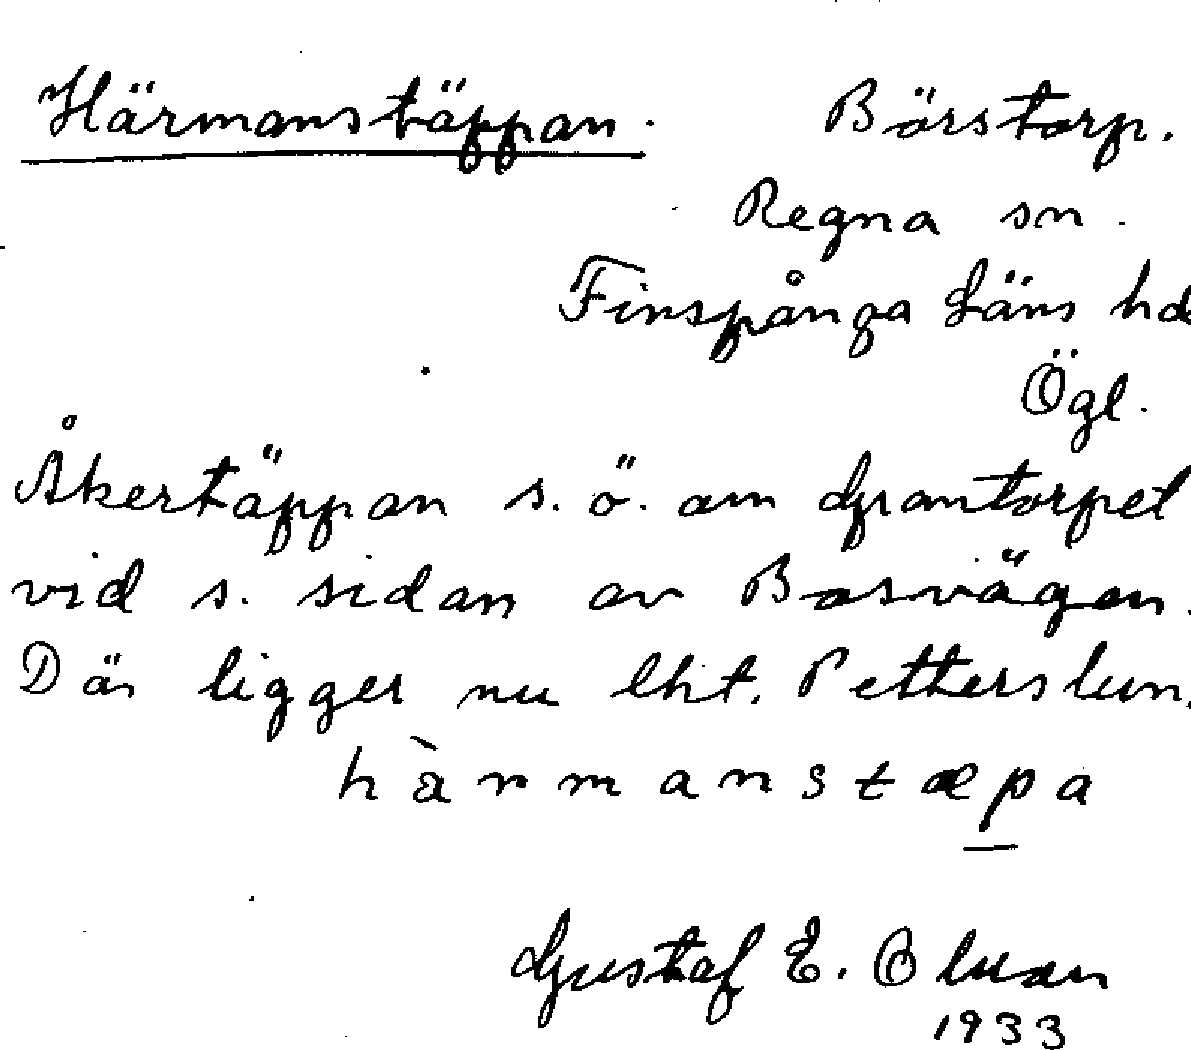 Härmanstäppan. Börstorp.
Regna sn.
Finspånga Läns hd
Ögl.
Åkertäppan s. ö. om Grantorpet
vid s. sidan av Bosvägen.
Där ligger nu lht. Petterslun
hàrmanstæpa
Gustaf E. Olsson
1933